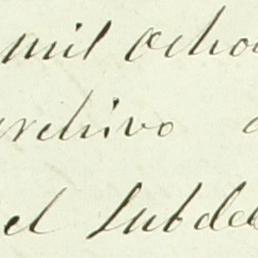 mil ocho
archivo
el Subdele